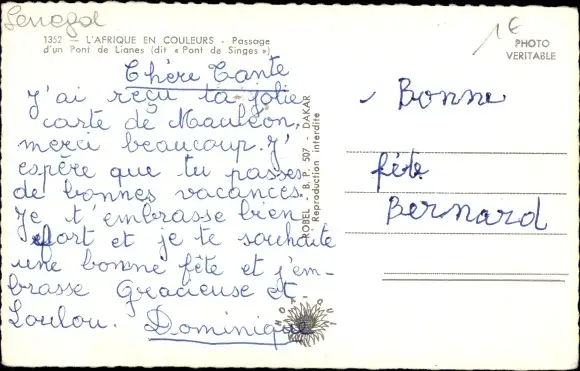 Senegal
1€
1352 — L'AFRIQUE EN COULEURS - Passage
d'un Pont de Lianes (dit « Pont de Singes »)
PHOTO
VERITABLE
Chère Tante
J'ai reçu ta jolie
carte de Mauléon,
merci beaucoup. J'
espère que tu passes
de bonnes vacances.
Je t'embrasse bien
fort et je te souhaite
une bonne fête et j'em-
brasse Gracieuse et
Loulou. Dominique
ROBEL - B. P. 507 - DAKAR
Reproduction interdite
Bonne
fête
Bernard